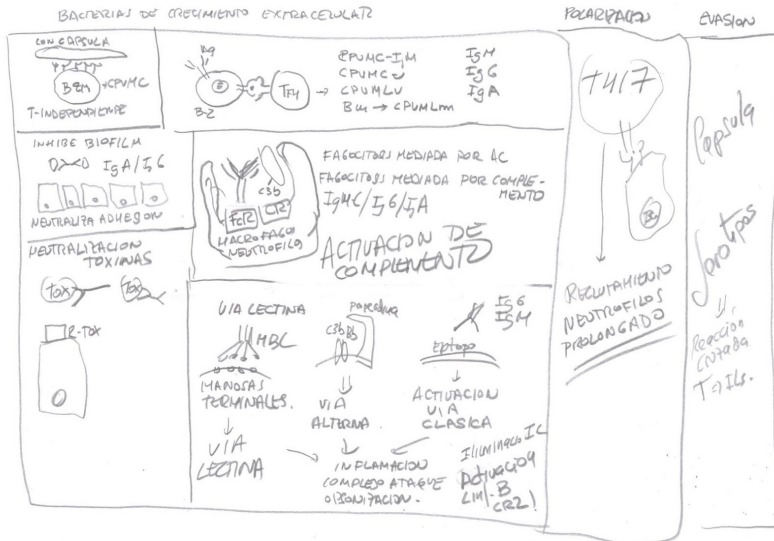 BACTERIAS DE CRECIMIENTO EXTRACELULAR
CON CAPSULA
BZM
CPUMC
T-INDEPENDIENTE
Ag
B-2
TF4
CPUMC-IgM
IgM
CPUMCV
IgG
CPUMLV
IgA
Bm → CPUMLm
INHIBE BIOFILM
IgA/IgG
NEUTRALIZA ADHESION
NEUTRALIZACION
TOXINAS
TOX
TOX
R-TOX
C3b
FcR
CR
MACROFAGO
NEUTROFILO
FAGOCITOSIS MEDIADA POR AC
FAGOCITOSIS MEDIADA POR COMPLE-
MENTO
IgMC/IgG/IgA
ACTIVACION DE
COMPLEMENTO
VIA LECTINA
MBL
MANOSAS
TERMINALES.
VIA
LECTINA
C3b Bb
VIA
ALTERNA.
IgG
IgM
Epitopo
ACTIVACION
VIA
CLASICA
INFLAMACION
COMPLEJO ATAQUE
OPSONIZACION.
Activación
Lin-B
CR2!
POLARIZACION
TH17
RECLUTAMIENTO
NEUTROFILOS
PROLONGADO
EVASION
Capsula
Serotipos
Reaccion
cruzada